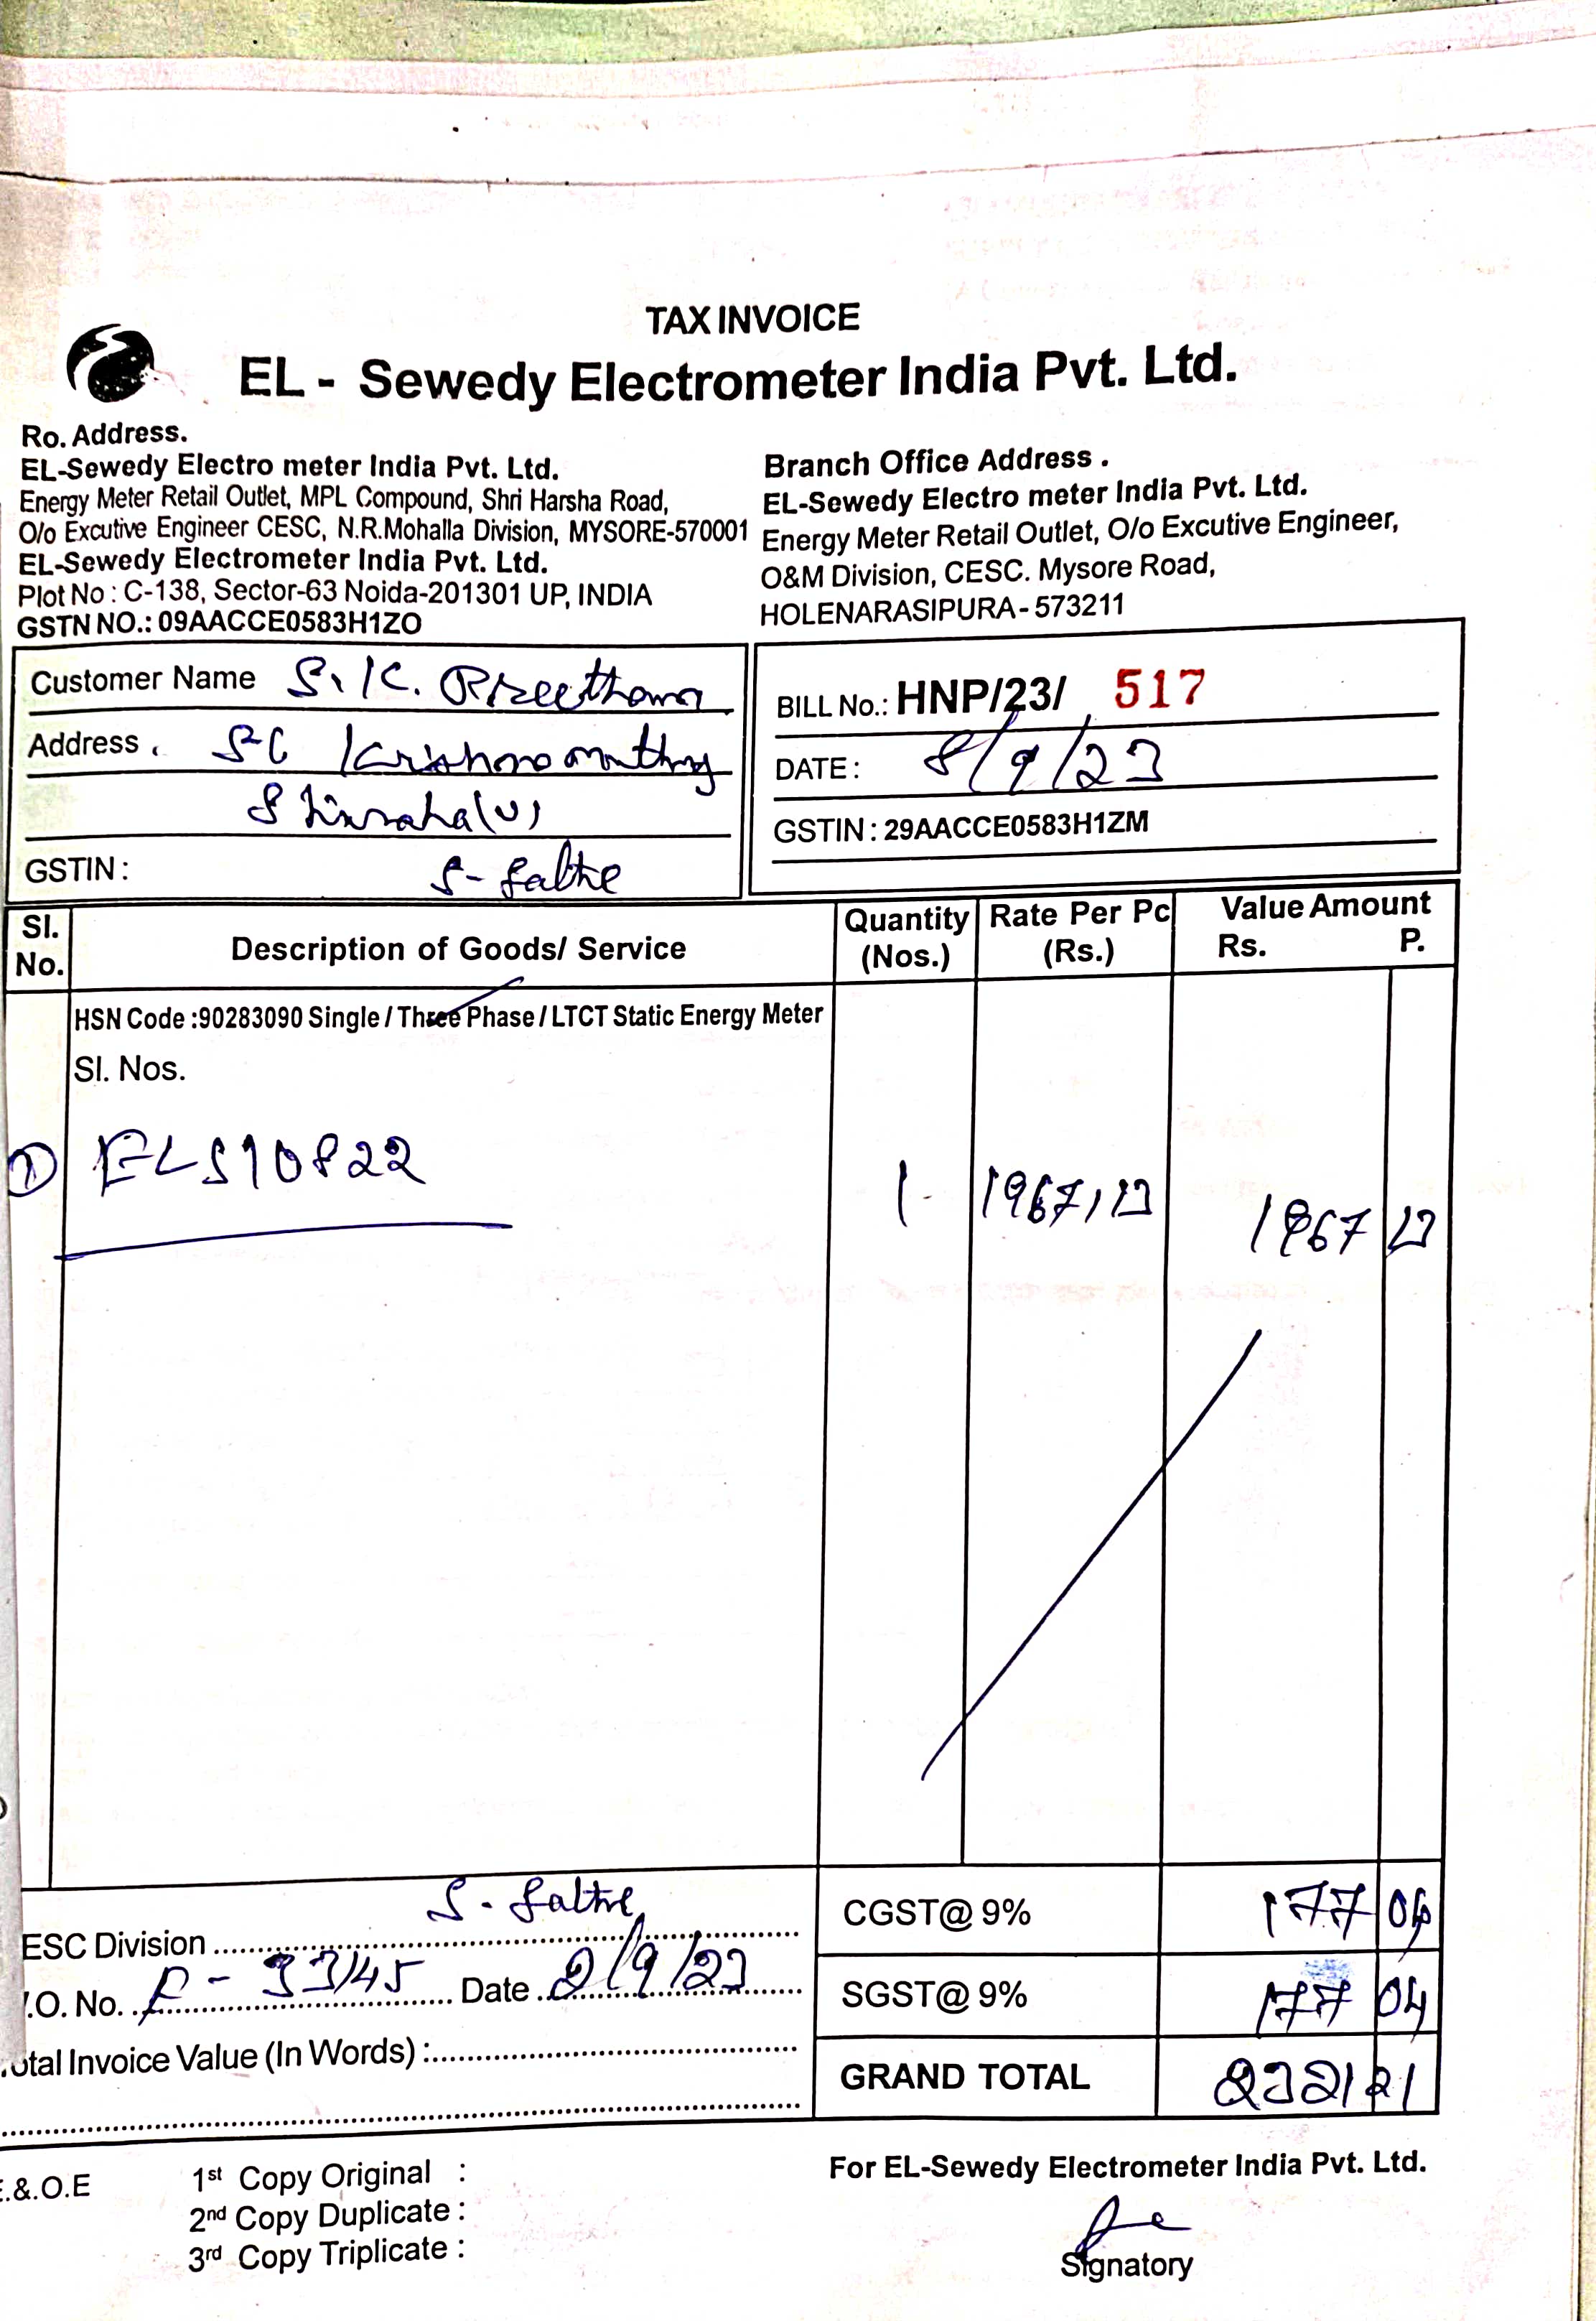 TAX INVOICE
EL - Sewedy Electrometer India Pvt. Ltd.
Ro. Address.
EL-Sewedy Electro meter India Pvt. Ltd.
Energy Meter Retail Outlet, MPL Compound, Shri Harsha Road,
O/o Excutive Engineer CESC, N.R.Mohalla Division, MYSORE-570001
EL-Sewedy Electrometer India Pvt. Ltd.
Plot No : C-138, Sector-63 Noida-201301 UP, INDIA
GSTN NO.: 09AACCE0583H1ZO
Branch Office Address .
EL-Sewedy Electro meter India Pvt. Ltd.
Energy Meter Retail Outlet, O/o Excutive Engineer,
O&M Division, CESC. Mysore Road,
HOLENARASIPURA- 573211
Customer Name S.K.
Address .
GSTIN :
BILL No.: HNP/23/ 517
DATE : 8/9/23
GSTIN : 29AACCE0583H1ZM
Sl. No. Description of Goods/ Service Quantity (Nos.) Rate Per Pc (Rs.) Value Amount Rs. P.
HSN Code :90283090 Single / Three Phase / LTCT Static Energy Meter
Sl. Nos.
1 ELS10822 1 1967
ESC Division
.O. No. Date 2/9/23
otal Invoice Value (In Words) :
CGST@ 9% 177 04
SGST@ 9% 177 04
GRAND TOTAL 2321 21
E.&.O.E
1st Copy Original :
2nd Copy Duplicate :
3rd Copy Triplicate :
For EL-Sewedy Electrometer India Pvt. Ltd.
Signatory